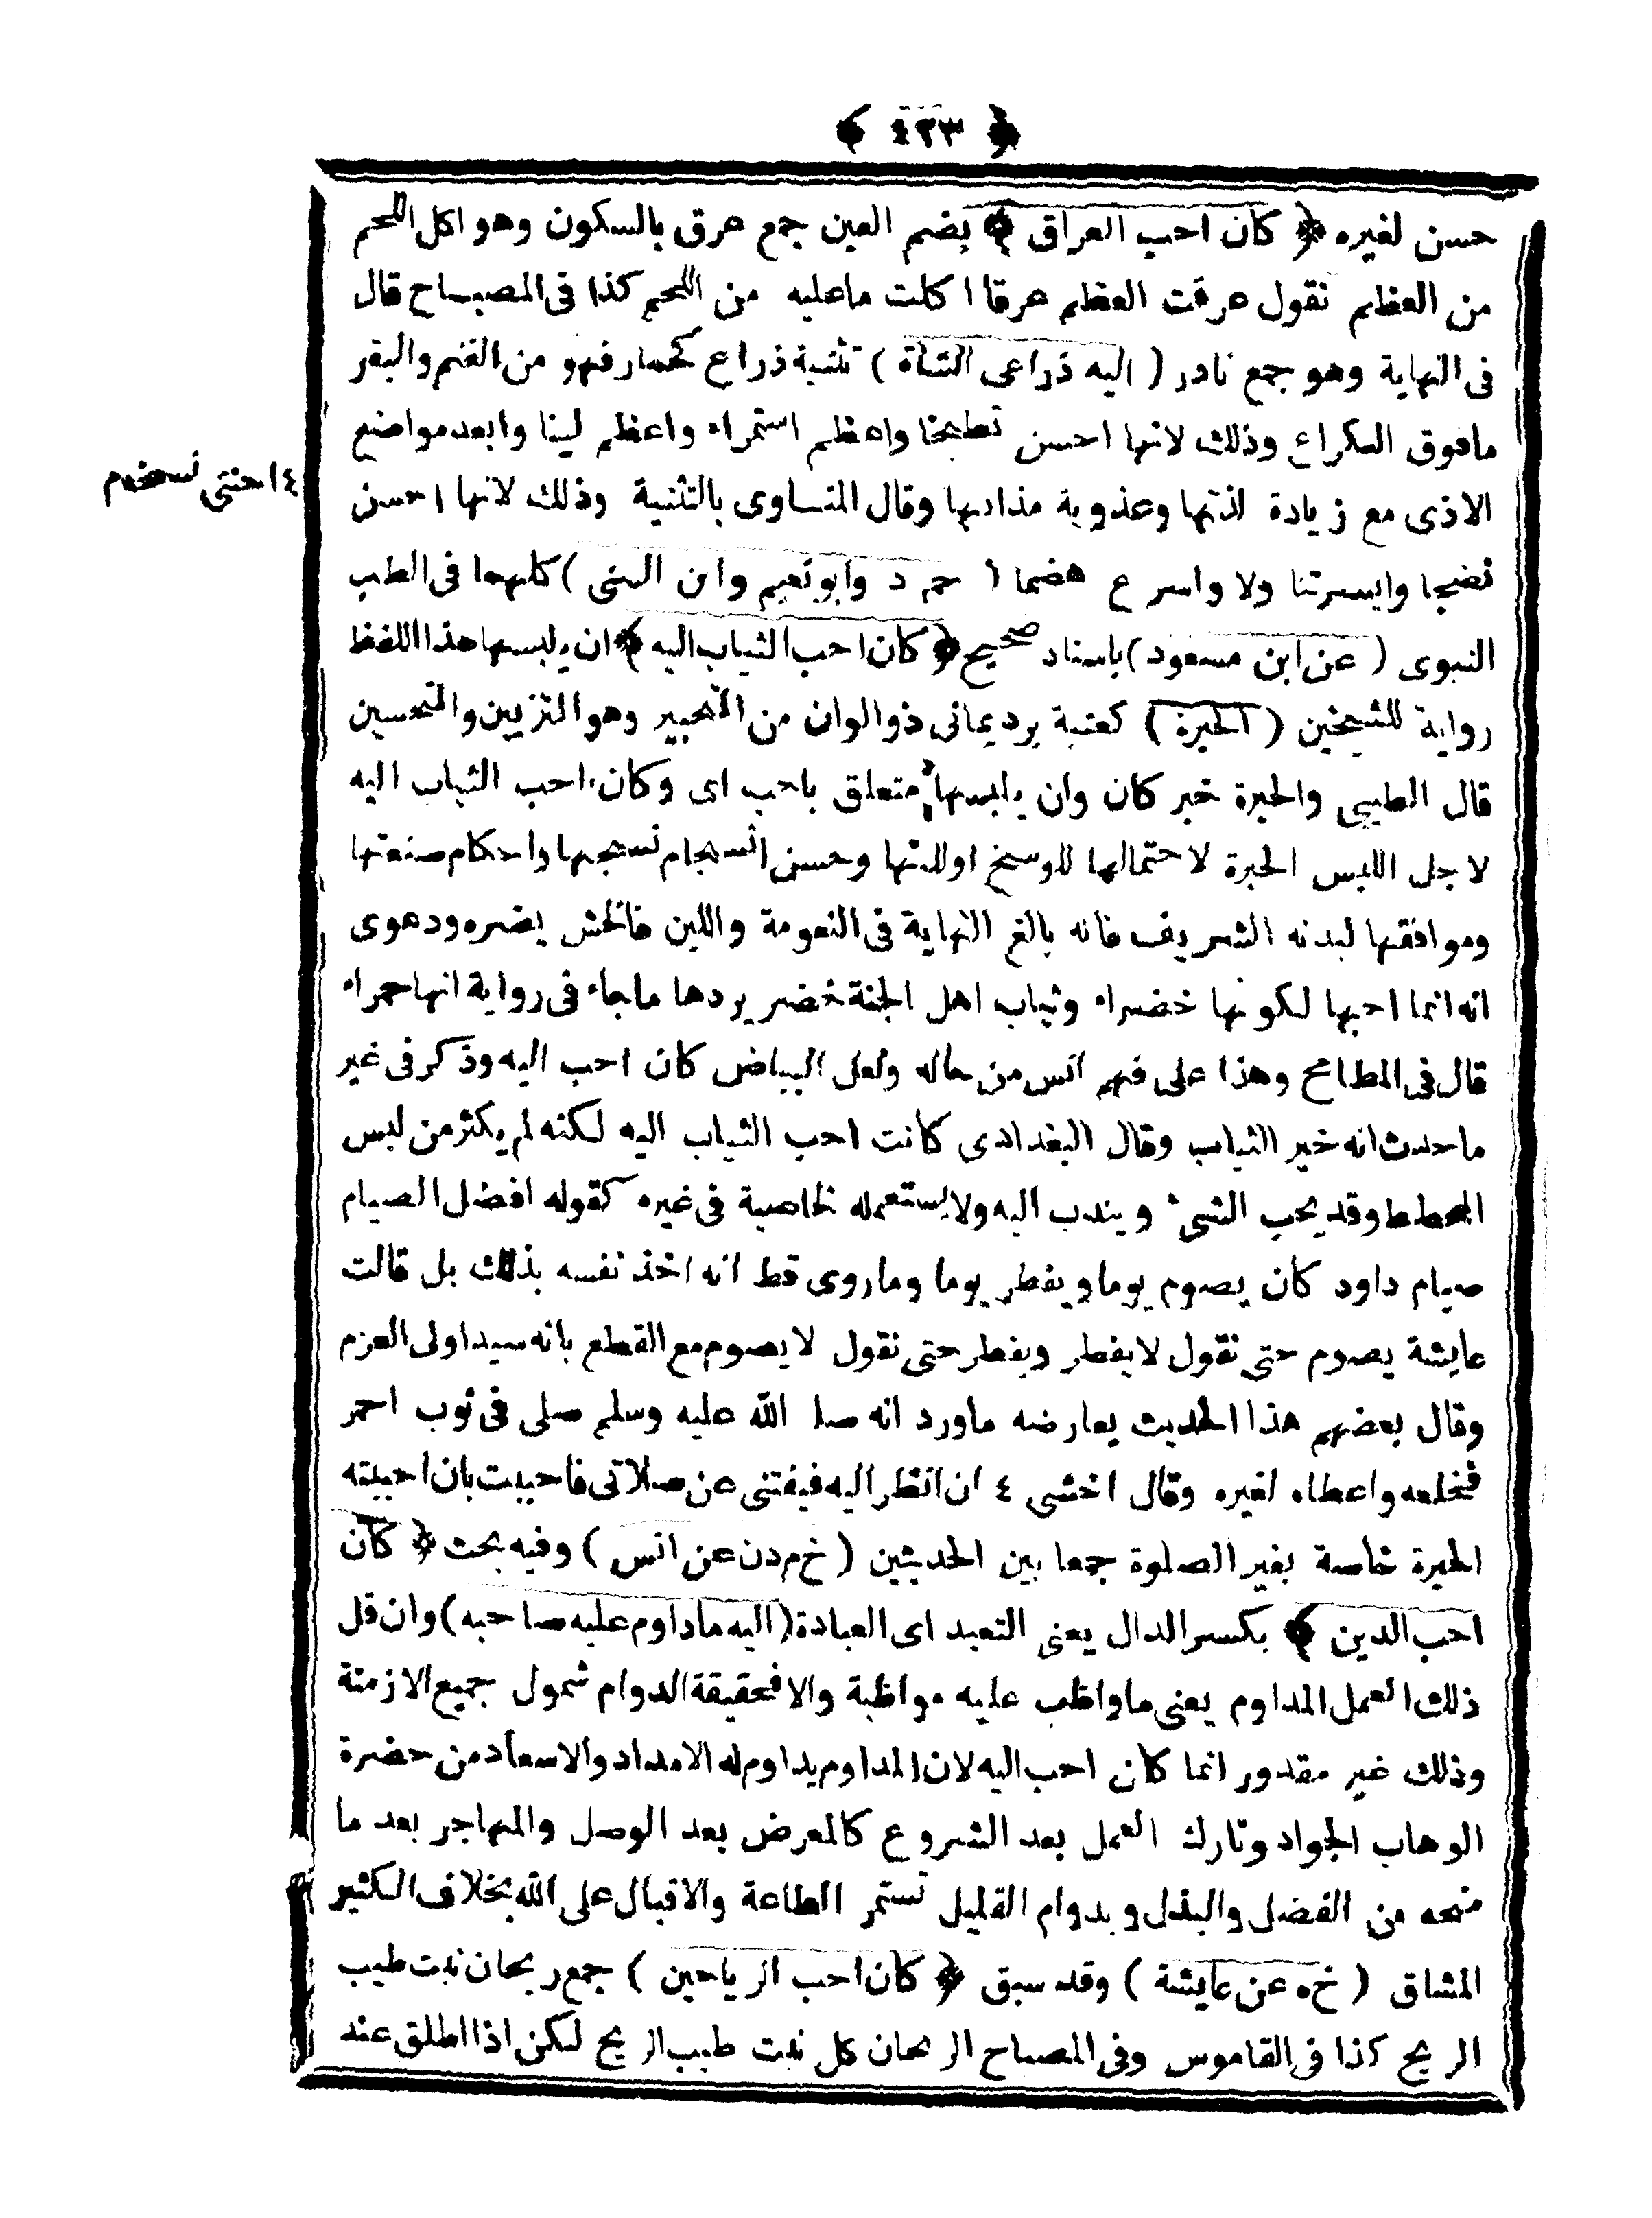 ﴿ ٤٣٣ ﴾
حسن لغيره ﴿ كان احب العراق ﴾ بضم العين جمع عرق بالسكون وهو اكل اللحم
من العظم تقول عرقت العظم عرقا اكلت ماعليه من اللحم كذا فى المصباح قال
فى النهاية وهو جمع نادر ( اليه ذراعى الشاة ) تثنية ذراع كحمار فهو من الغنم والبقر
مافوق الكراع وذلك لانها احسن نطبخا واعظم استمراء واعظم لينا وابعد مواضع
الاذى مع زيادة لذتها وعذوبة مذاقها وقال المناوى بالتثنية وذلك لانها احسن
نضيجا وايسرتنا ولا واسرع هضما ( حم د وابونعيم وابن السنى ) كلهما فى الطب
النبوى ( عن ابن مسعود ) باسناد صحيح ﴿ كان احب الثياب اليه ﴾ ان يلبسها هذا اللفظ
رواية للشيخين ( الحبرة ) كعنبة برد يمانى ذوالوان من التحبير وهو التزيين والتحسين
قال الطيبى والحبرة خبر كان وان يلبسها متعلق باحب اى وكان احب الثياب اليه
لاجل اللبس الحبرة لاحتمالها للوسخ اولينها وحسن انسجام نسجها واحكام صنعتها
وموافقتها لبدنه الشريف فانه بالغ النهاية فى النعومة واللين فالخشن يضره ودعوى
انه انما احبها لكونها خضراء وثياب اهل الجنة خضر يردها ماجاء فى رواية انها حمراء
قال فى المطامح وهذا على فهم انس من حاله ولعل البياض كان احب اليه وذكر فى غير
ماحدث انه خير الثياب وقال البغدادى كانت احب الثياب اليه لكنه لم يكثر من لبس
المخطط وقد يحب الشئ ويندب اليه ولايستعمله لخاصية فى غيره كقوله افضل الصيام
صيام داود كان يصوم يوما ويفطر يوما وماروى قط انه اخذ نفسه بذلك بل قالت
عايشة يصوم حتى نقول لايفطر ويفطر حتى نقول لايصوم مع القطع بانه سيد اولى العزم
وقال بعضهم هذا الحديث يعارضه ماورد انه صلى الله عليه وسلم صلى فى ثوب احمر
فخلعه واعطاه لغيره وقال اخشى ٤ ان انظر اليه فيفتنى عن صلاتى فاجيبت بان احبيته
الحبرة خاصة بغير الصلوة جمعا بين الحديثين ( خ م د ن عن انس ) وفيه بحث ﴿ كان
احب الدين ﴾ بكسر الدال يعنى التعبد اى العبادة ( اليه ماداوم عليه صاحبه ) وان قل
ذلك العمل المداوم يعنى ماواظب عليه مواظبة والا فحقيقة الدوام شمول جميع الازمنة
وذلك غير مقدور انما كان احب اليه لان المداوم يداوم له الامداد والاسعاد من حضرة
الوهاب الجواد وتارك العمل بعد الشروع كالمعرض بعد الوصل والمهاجر بعد ما
منحه من الفضل والبذل وبدوام القليل تستمر الطاعة والاقبال على الله بخلاف الكثير
المشاق ( خ ه عن عايشة ) وقد سبق ﴿ كان احب الرياحين ) جمع ريحان نبت طيب
الريح كذا فى القاموس وفى المصباح الريحان كل نبت طيب الريح لكن اذا اطلق عند
٤ احنتى نسخه م